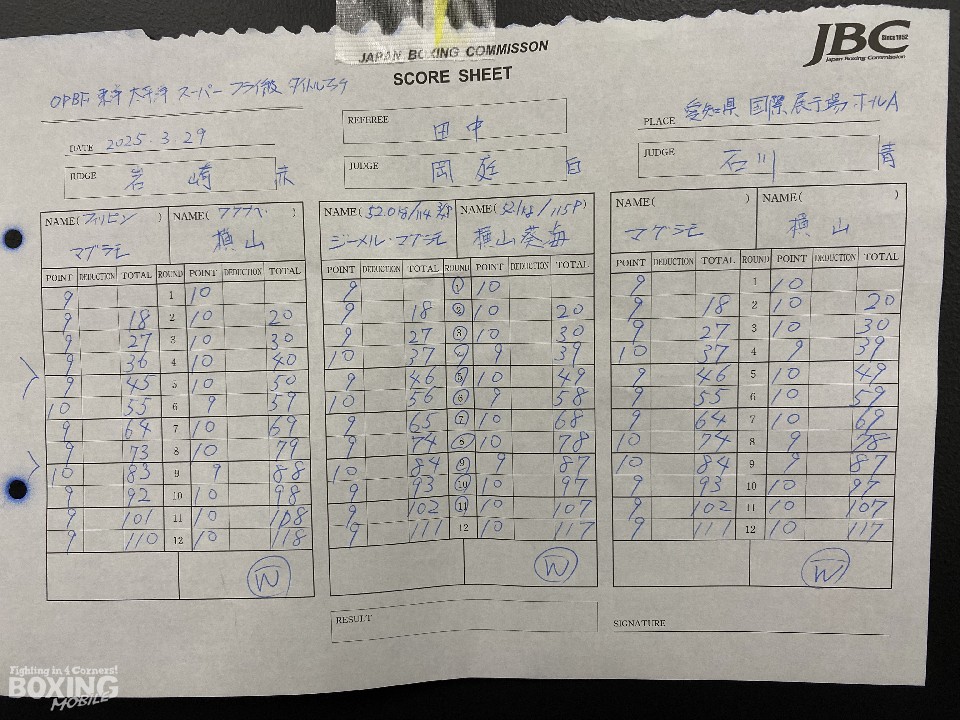 JBC
Since 1952
Japan Boxing Commission
JAPAN BOXING COMMISSON
SCORE SHEET
OPBF 東洋太平洋 スーパーフライ級 タイトルマッチ
DATE 2025.3.29
REFEREE 田中
PLACE 愛知県国際展示場ホールA
JUDGE 岩崎 赤
JUDGE 岡庭 白
JUDGE 石川 青
NAME(フィリピン) マグラモ NAME( ) 横山
POINT DEDUCTION TOTAL ROUND POINT DEDUCTION TOTAL
9 1 10
9 18 2 10 20
9 27 3 10 30
9 36 4 10 40
9 45 5 10 50
10 55 6 9 59
9 64 7 10 69
9 73 8 10 79
10 83 9 9 88
9 92 10 10 98
9 101 11 10 108
9 110 12 10 118
W
NAME(52.0kg/114 ) ジーメル・マグラモ NAME(52.1kg/115P) 横山葵海
POINT DEDUCTION TOTAL ROUND POINT DEDUCTION TOTAL
9 1 10
9 18 2 10 20
9 27 3 10 30
10 37 4 9 39
9 46 5 10 49
10 56 6 9 58
9 65 7 10 68
9 74 8 10 78
10 84 9 9 87
9 93 10 10 97
9 102 11 10 107
9 111 12 10 117
W
NAME( ) マグラモ NAME( ) 横山
POINT DEDUCTION TOTAL ROUND POINT DEDUCTION TOTAL
9 1 10
9 18 2 10 20
9 27 3 10 30
10 37 4 9 39
9 46 5 10 49
9 55 6 10 59
9 64 7 10 69
10 74 8 9 78
10 84 9 9 87
9 93 10 10 97
9 102 11 10 107
9 111 12 10 117
W
RESULT
SIGNATURE
Fighting in 4 Corners!
BOXING
MOBILE